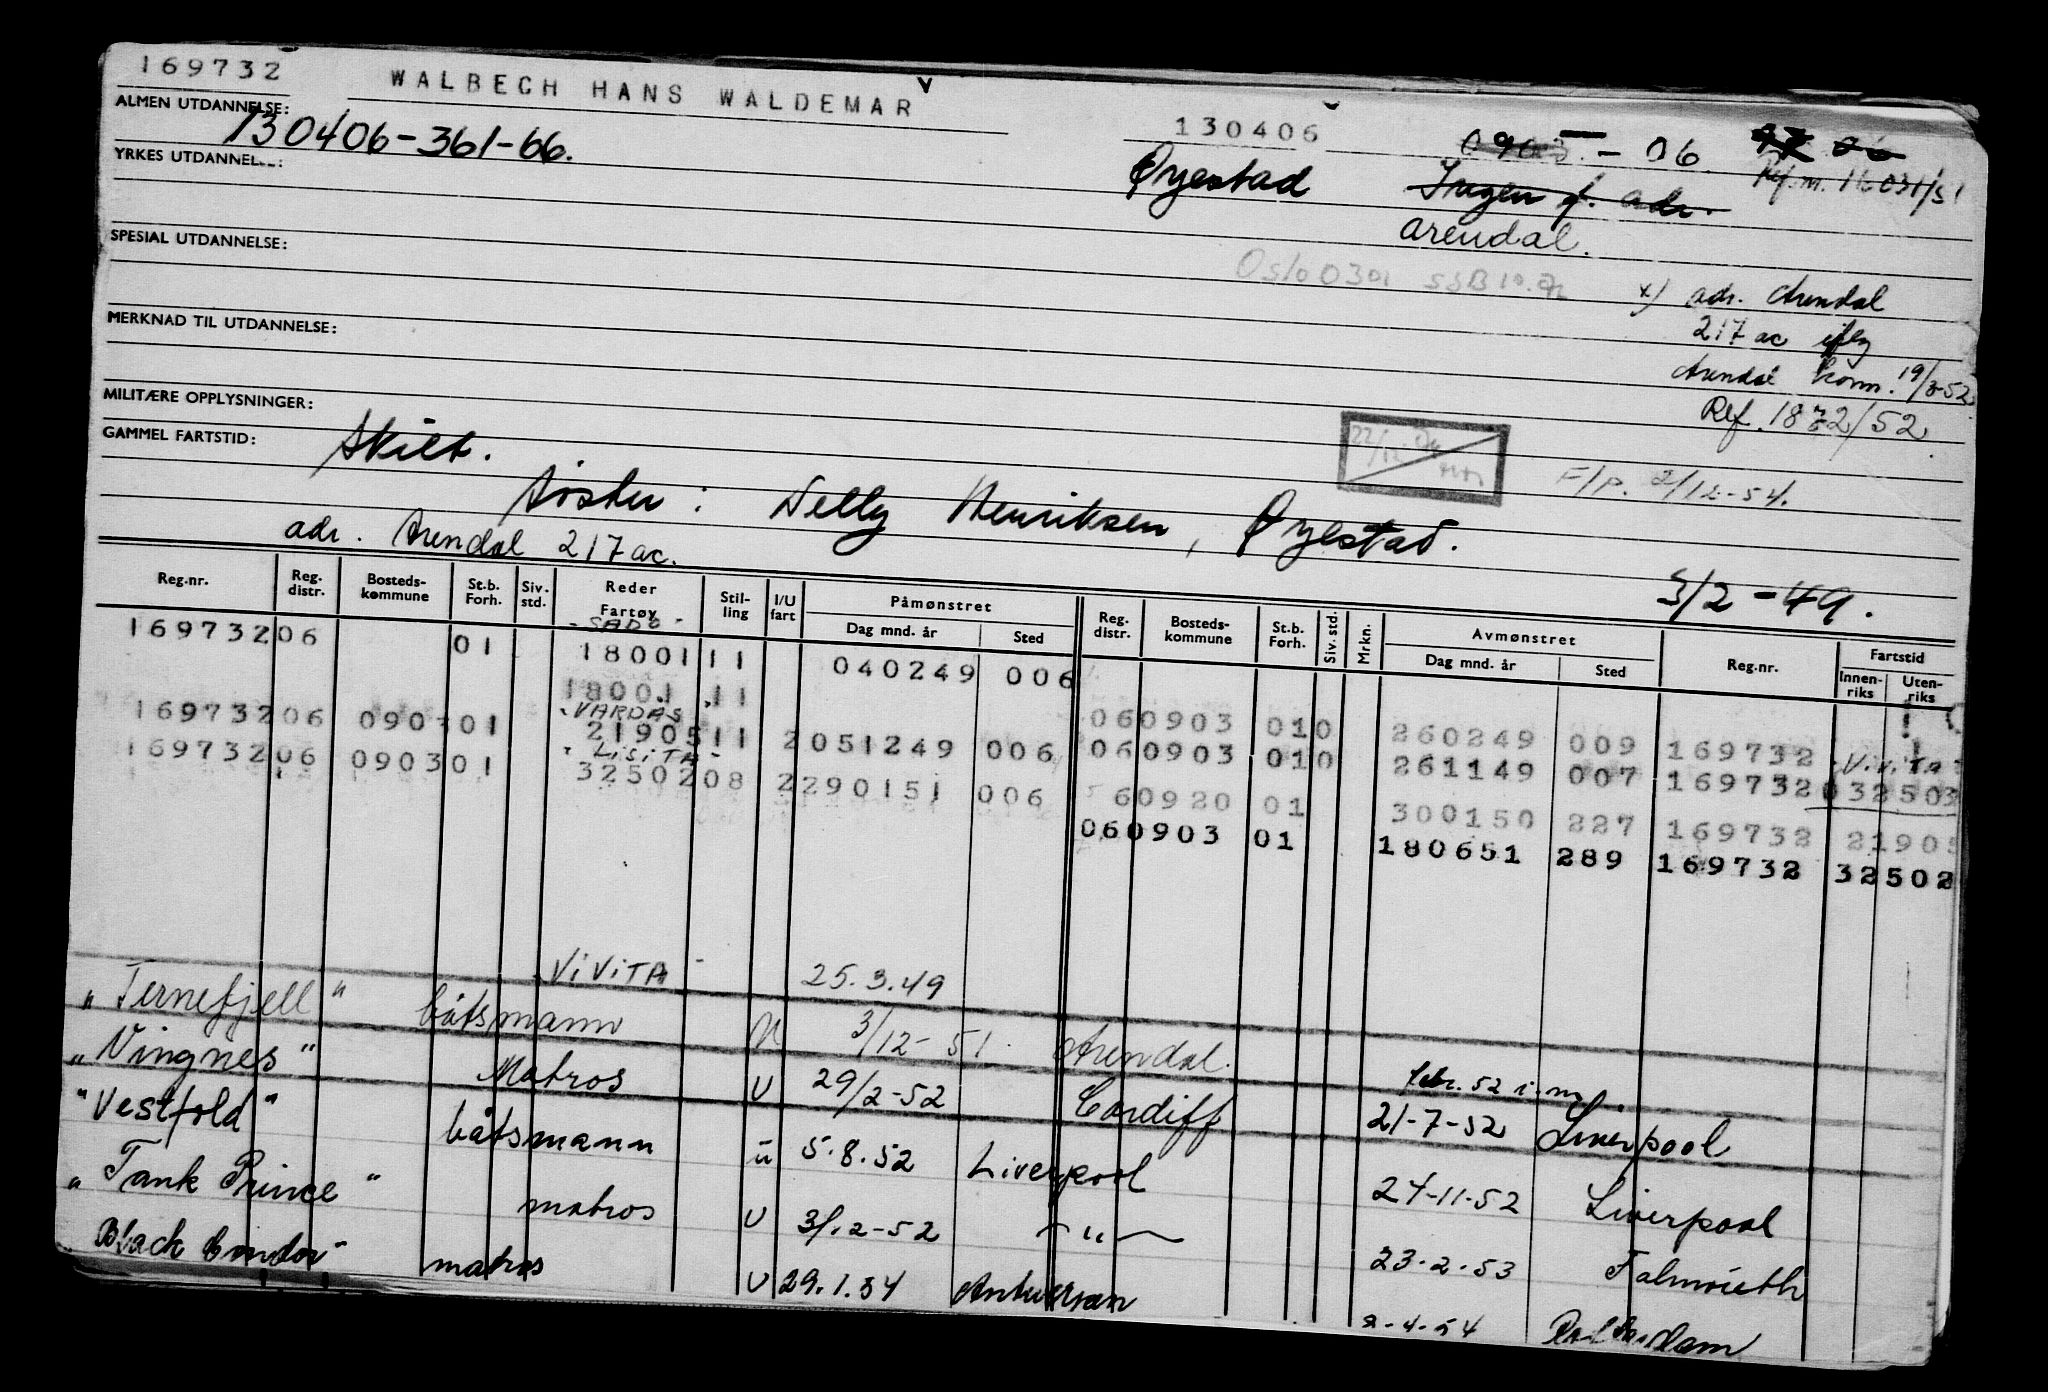 169732 WALBECH HANS WALDEMAR
ALMEN UTDANNELSE: 130406-361-66.
130406 - 06.
YRKES UTDANNELSE:
Øyestad Ingen f. adr. Ref. m.
arendal.
SPESIAL UTDANNELSE:
Oslo 0301
x) adr. Arendal
217 ac iflg
MERKNAD TIL UTDANNELSE:
Arendal komm. 19/3-52
MILITÆRE OPPLYSNINGER:
Ref.
GAMMEL FARTSTID: Skilt.
F/P. 2/12-54.
Søster: Nelly Henriksen, Øyestad.
adr. Arendal 217 ac.
3/2-49.
Reg.nr. Reg. distr. Bosteds-kommune St.b. Forh. Siv. std. Reder Fartøy Stil-ling I/U fart Påmønstret Dag mnd. år Sted Reg. distr. Bosteds-kommune St.b. Forh. Siv. std. Mrkn. Avmønstret Dag mnd. år Sted Reg.nr. Fartstid Innen-riks Uten-riks
- SADO -
169732 06 01 18001 11 040249 006
18001 11 060903 010 260249 009 169732 Vivita
VARDAS
169732 06 0903 01 21905 11 2 051249 006 060903 010 261149 007 169732 032503
LISITA
169732 06 0903 01 32502 08 2 290151 006 60920 01 300150 227 169732 21905
060903 01 180651 289 169732 32502
ViViTA - 25.3.49
"Ternefjell" båtsmann U 3/12-51. Arendal. febr. 52 i.m.
"Vingnes" Matros U 29/2-52 Cardiff 21-7-52 Liverpool
"Vestfold" båtsmann u 5.8.52 Liverpool 24-11-52 Liverpool
"Tank Prince" matros U 3/12-52 — " — 23-2-53 Falmouth
"Black Condor" matros U 29.1.54 Antwerpen -4-54 Rotterdam